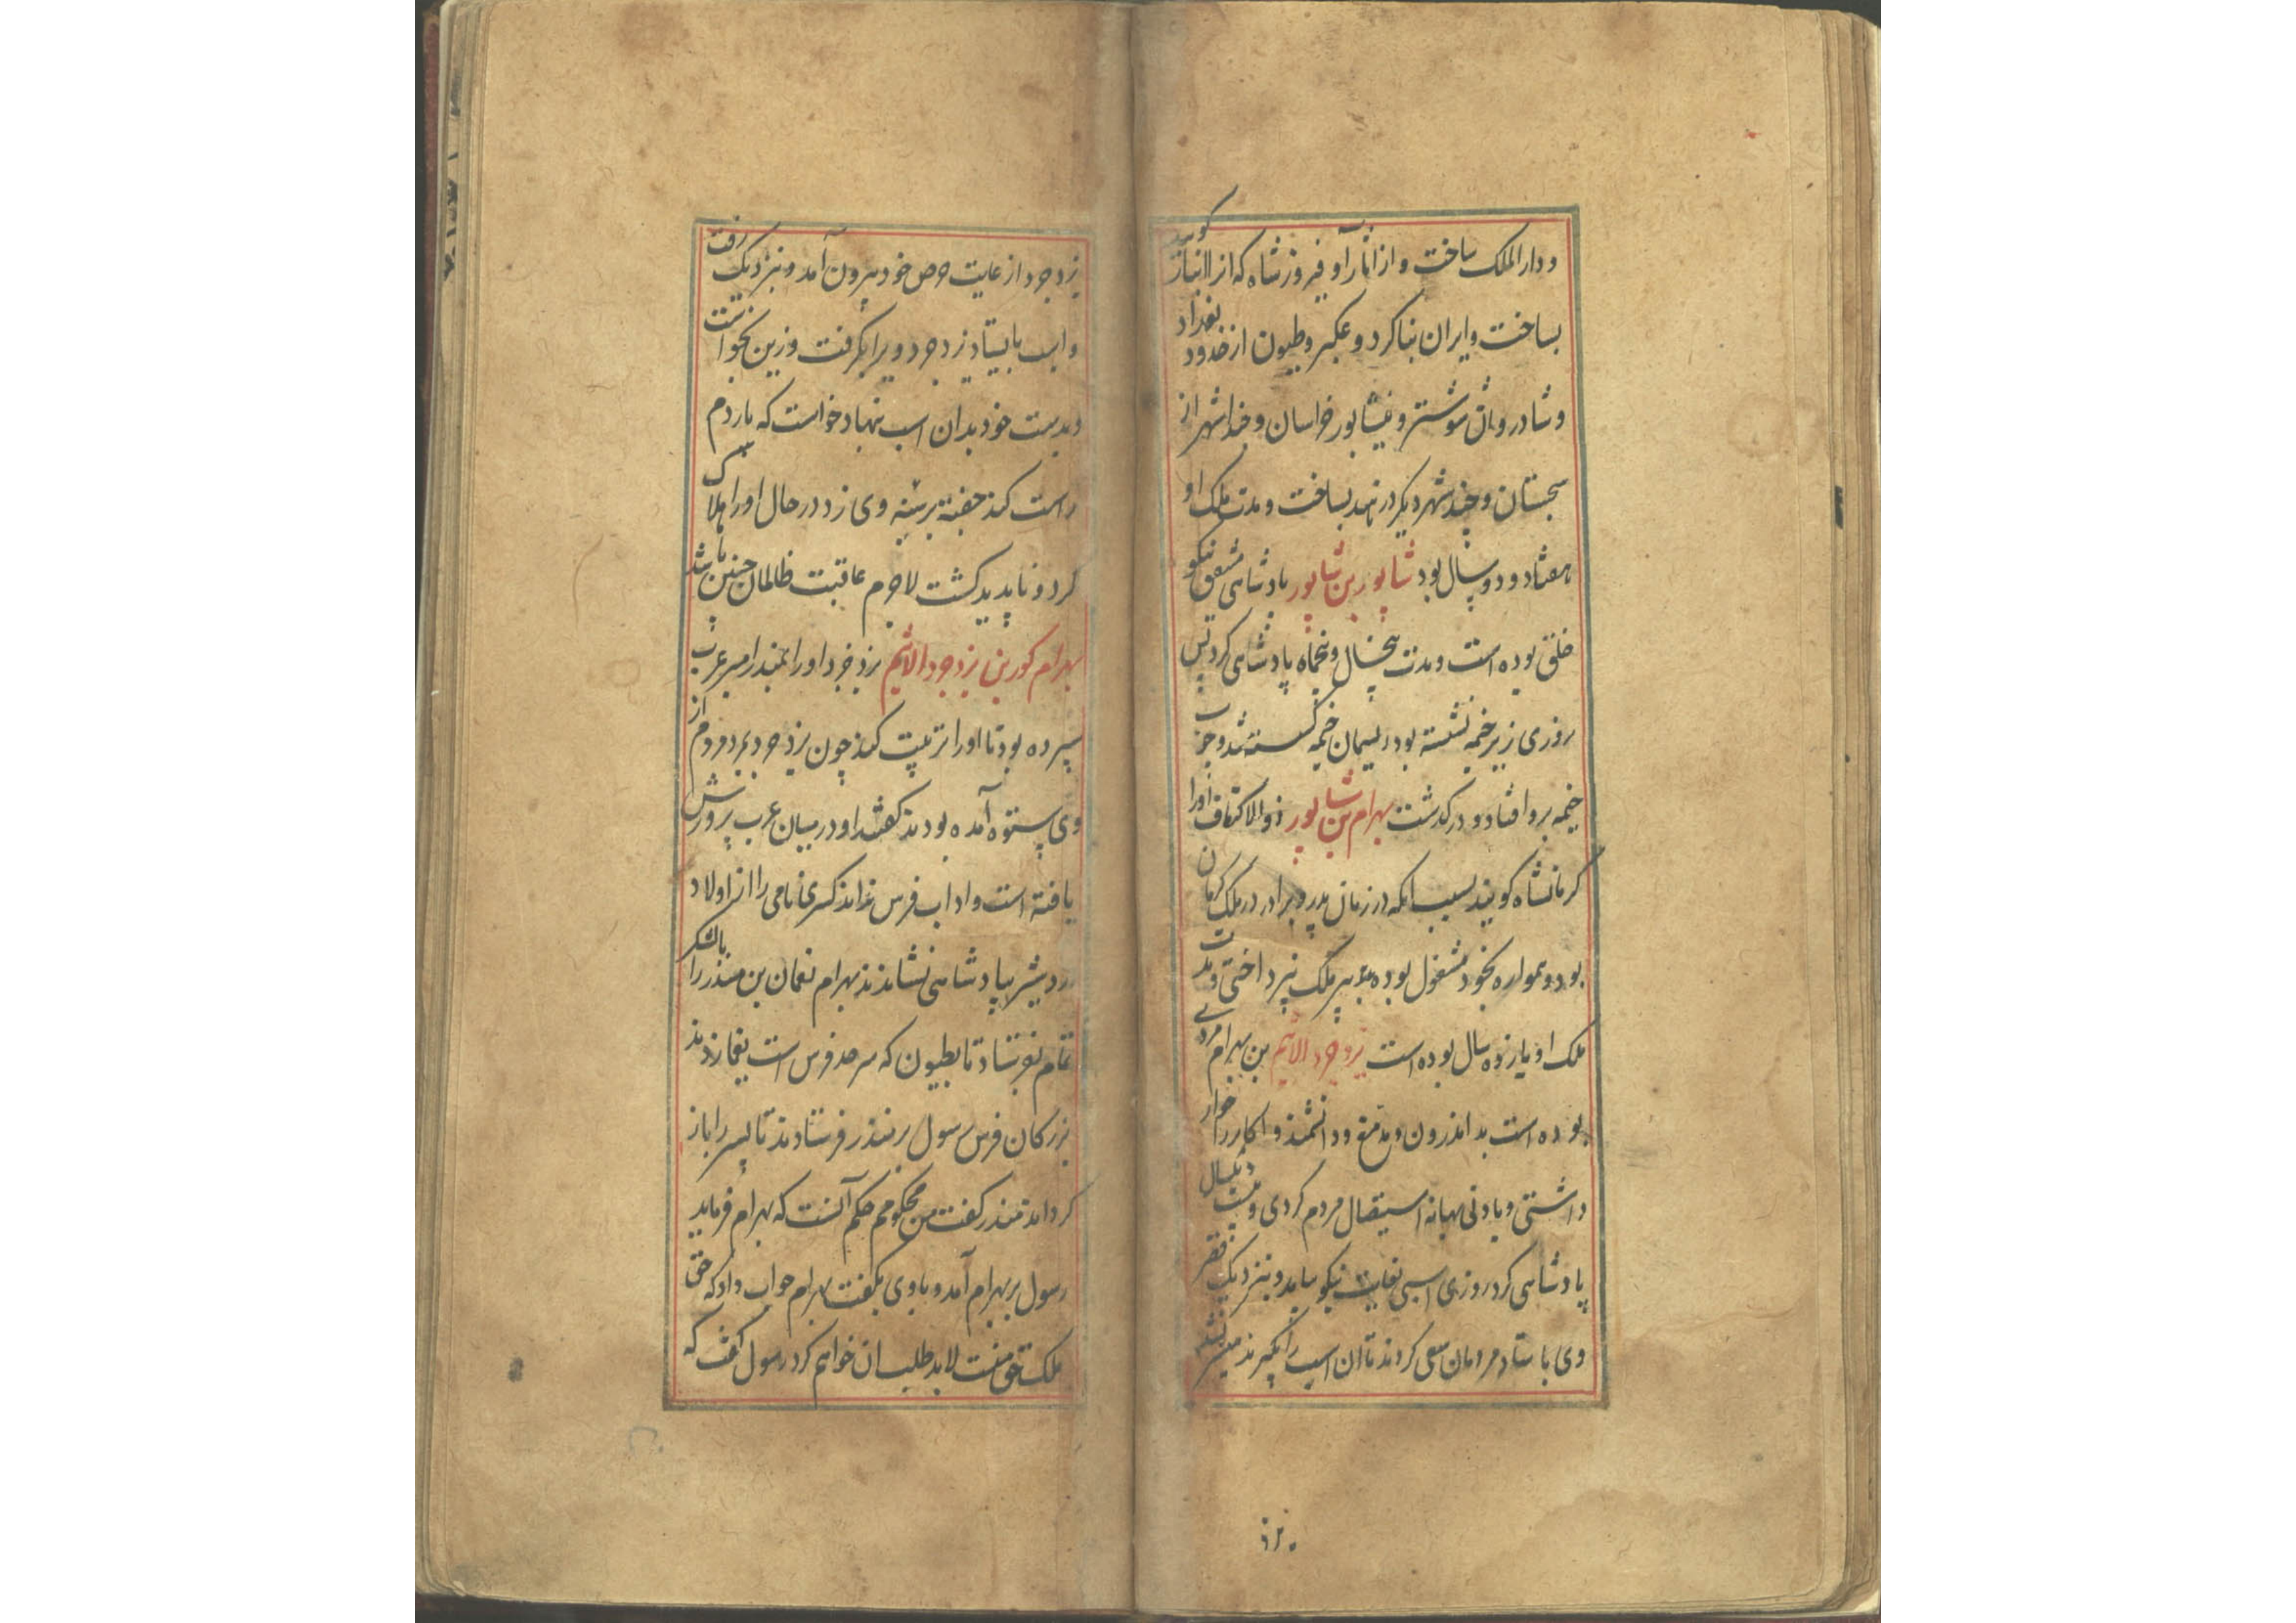 و دار الملک ساخت و از آثار او فیروز شاه که انرا انبار کویند
بساخت و ایران بنا کرد و عکبر و طیون از حدود بغداد
و شادروان شوشتر و نیشابور خراسان و چند شهر از
سجستان و چند شهر دیکر در هند بساخت و مدت ملک او
هفتاد و دو سال بود شاپور بن شاپور پادشاهی مشفق نیکو
خلق بوده است و مدت پنجسال و پنجماه پادشاهی کرد پس
روزی زیر خیمه نشسته بود ریسمان خیمه کسسته شد و چوب
خیمه برو افتاد و در کذشت بهرام بن شاپور ذو الاکتاف اورا
کرمانشاه کویند بسبب انکه در زمان پدر و برادر در ملک کرمان
بود و همواره بخود مشغول بوده بر ملک نپرداختی و مدت
ملک او یازده سال بوده است یزدجرد الاثیم بن بهرام مردی
بوده است بد اندرون و بد منع و دانشمند و اکابر را خوار
داشتی و بادنی بهانه استیصال مردم کردی و بیست و یکسال
پادشاهی کرد روزی اسبی بغایت نیکو بیامد و بنزدیک قصر
وی باستاد مردمان سعی کردند تا ان اسب را بکیرند میسر نشد
یزدجرد از غایت حرص خود بیرون آمد و بنزدیک رفت
و اسب بایستاد یزدجرد ویرا بکرفت و زین بخواست
و بدست خود بدان اسب نهاد خواست که پاردم
راست کند جفتهٔ بر سینهٔ وی زد در حال او را هلاک
کرد و ناپدید کشت لاجرم عاقبت ظالمان چنین باشد
بهرام کور بن یزدجرد الاثیم یزدجرد اورا بمنذر امیر عرب
سپرده بود تا اورا تربیت کند چون یزدجرد بمرد مردم از
وی بستوه آمده بودند کفتند او در میان عرب پرورش
یافته است و اداب فرس نداند کسری نامی را از اولاد
اردشیر بپادشاهی نشاندند بهرام نعمان بن منذر را با لشکر
تمام بفرستاد تا بطیون که سرحد فرس است یغما زدند
بزرکان فرس رسول بر منذر فرستادند تا پسر را باز
کرداند منذر کفت من محکومم حکم آنست که بهرام فرماید
رسول بر بهرام آمد و با وی بکفت بهرام جواب داد که حق
ملک حق منست لابد طلب ان خواهم کرد رسول کفت که